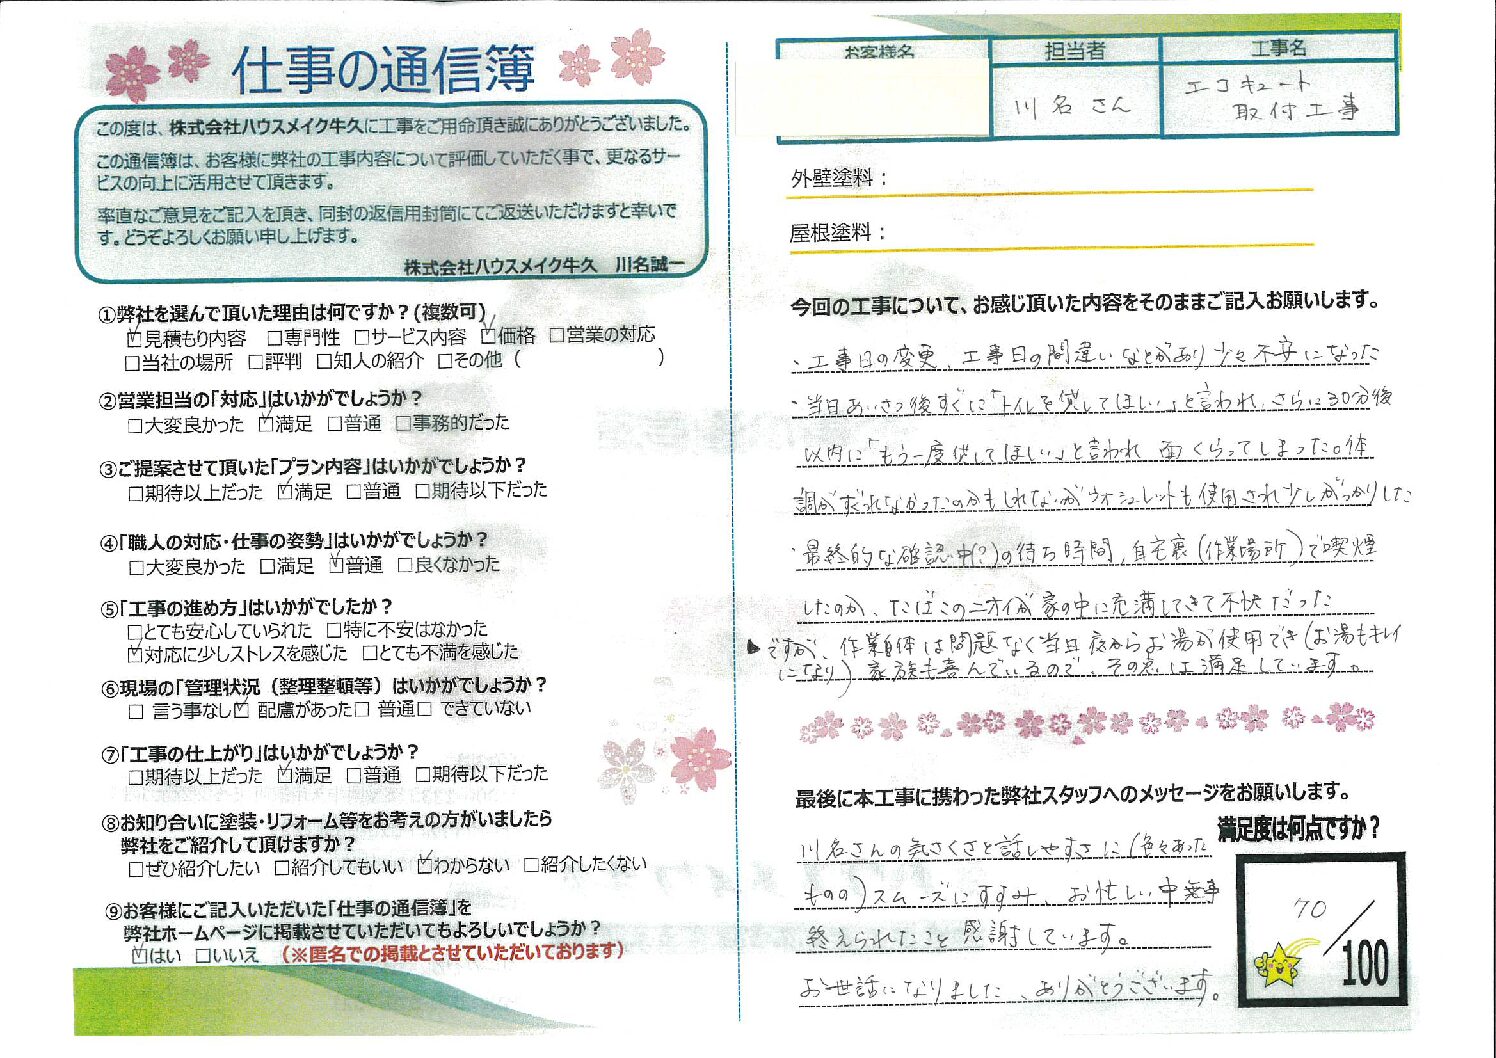 仕事の通信簿
この度は、株式会社ハウスメイク牛久に工事をご用命頂き誠にありがとうございました。
この通信簿は、お客様に弊社の工事内容について評価していただく事で、更なるサー
ビスの向上に活用させて頂きます。
率直なご意見をご記入を頂き、同封の返信用封筒にてご返送いただけますと幸いで
す。どうぞよろしくお願い申し上げます。
株式会社ハウスメイク牛久　川名誠一
①弊社を選んで頂いた理由は何ですか？(複数可)
☑見積もり内容　□専門性　□サービス内容　☑価格　□営業の対応
□当社の場所　□評判　□知人の紹介　□その他（　　　　　　　）
②営業担当の「対応」はいかがでしょうか？
□大変良かった　☑満足　□普通　□事務的だった
③ご提案させて頂いた「プラン内容」はいかがでしょうか？
□期待以上だった　☑満足　□普通　□期待以下だった
④「職人の対応・仕事の姿勢」はいかがでしょうか？
□大変良かった　□満足　☑普通　□良くなかった
⑤「工事の進め方」はいかがでしたか？
□とても安心していられた　□特に不安はなかった
☑対応に少しストレスを感じた　□とても不満を感じた
⑥現場の「管理状況（整理整頓等）はいかがでしょうか？
□ 言う事なし☑ 配慮があった□ 普通□ できていない
⑦「工事の仕上がり」はいかがでしょうか？
□期待以上だった　☑満足　□普通　□期待以下だった
⑧お知り合いに塗装・リフォーム等をお考えの方がいましたら
弊社をご紹介して頂けますか？
□ぜひ紹介したい　□紹介してもいい　☑わからない　□紹介したくない
⑨お客様にご記入いただいた「仕事の通信簿」を
弊社ホームページに掲載させていただいてもよろしいでしょうか？
☑はい　□いいえ　（※匿名での掲載とさせていただいております）
お客様名　担当者　工事名
川名さん　エコキュート
取付工事
外壁塗料：
屋根塗料：
今回の工事について、お感じ頂いた内容をそのままご記入お願いします。
・工事日の変更、工事日の間違いなどがあり少々不安になった
・当日あいさつ後すぐに「トイレを貸してほしい」と言われ、さらに30分後
以内に「もう一度貸してほしい」と言われ 面くらってしまった。体
調がすぐれなかったのかもしれないがウォシュレットも使用され少しがっかりした
・最終的な確認中(?)の待ち時間、自宅裏（作業場所）で喫煙
したのか、たばこのニオイが家の中に充満してきて不快だった
▶ですが、作業自体は問題なく当日夜からお湯が使用でき（お湯もキレイ
になり）家族も喜んでいるので、その点は満足しています。
最後に本工事に携わった弊社スタッフへのメッセージをお願いします。
満足度は何点ですか？
川名さんの気さくさと話しやすさに（色々あった
ものの）スムーズにすすみ、お忙しい中無事
終えられたこと感謝しています。
お世話になりました、ありがとうございます。
70／100